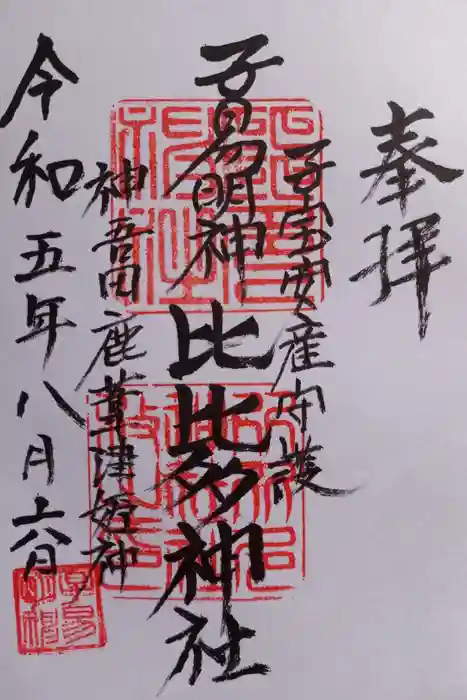 奉拝
子宝安産守護
子易明神
比比多神社
神吾田鹿葦津姫神
令和五年八月六日